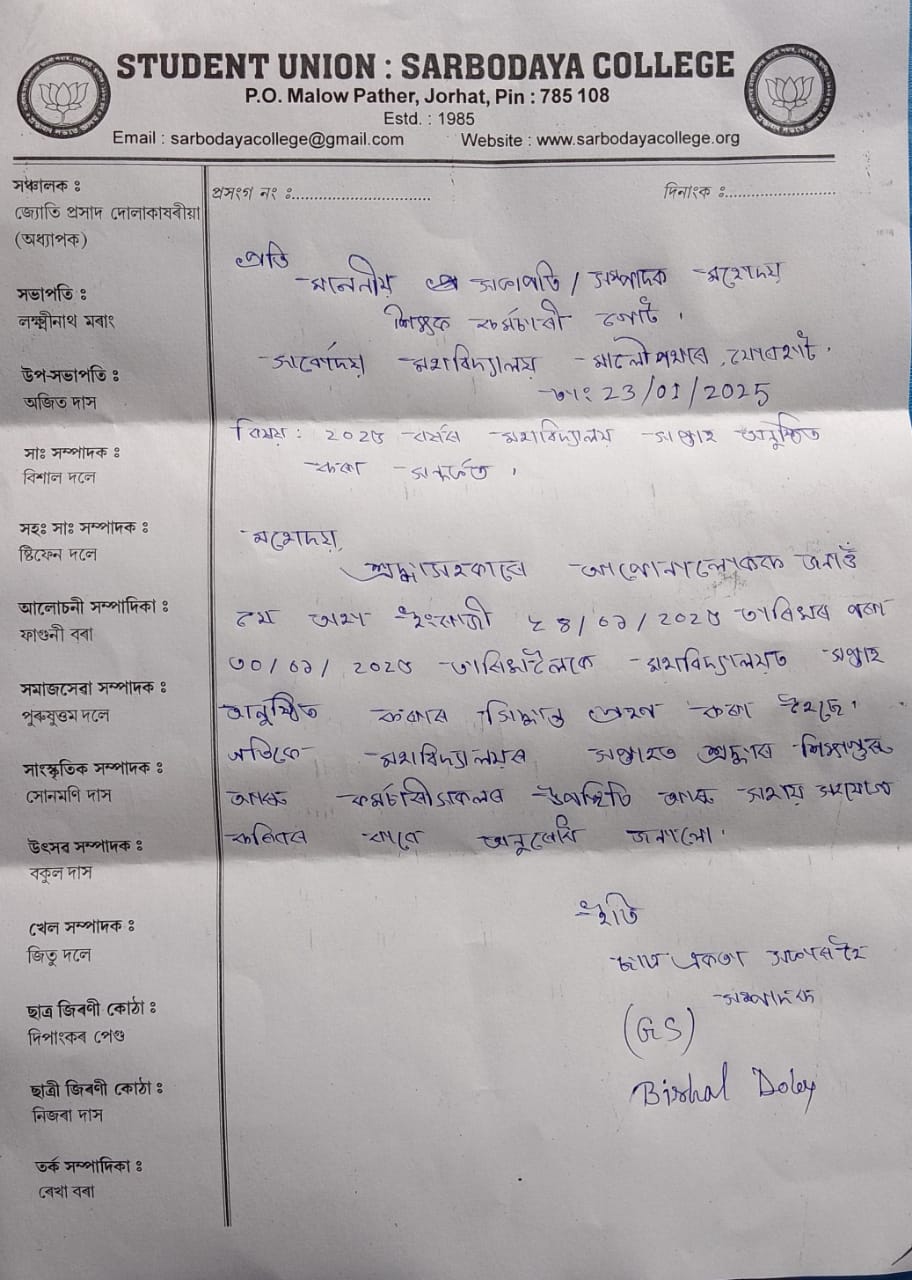 STUDENT UNION : SARBODAYA COLLEGE
P.O. Malow Pather, Jorhat, Pin : 785 108
Estd. : 1985
Email : sarbodayacollege@gmail.com Website : www.sarbodayacollege.org
সঞ্চালক ঃ
জ্যোতি প্ৰসাদ দোলাকাষৰীয়া
(অধ্যাপক)
সভাপতি ঃ
লক্ষ্মীনাথ মৰাং
উপ-সভাপতি ঃ
অজিত দাস
সাঃ সম্পাদক ঃ
বিশাল দলে
সহঃ সাঃ সম্পাদক ঃ
ষ্টিফেন দলে
আলোচনী সম্পাদিকা ঃ
ফাগুনী বৰা
সমাজসেৱা সম্পাদক ঃ
পুৰুষুত্তম দলে
সাংস্কৃতিক সম্পাদক ঃ
সোনমণি দাস
উৎসৱ সম্পাদক ঃ
বকুল দাস
খেল সম্পাদক ঃ
জিতু দলে
ছাত্ৰ জিৰণী কোঠা ঃ
দিপাংকৰ পেগু
ছাত্ৰী জিৰণী কোঠা ঃ
নিজৰা দাস
তৰ্ক সম্পাদিকা ঃ
ৰেখা বৰা
প্ৰসংগ নং ঃ.............................. দিনাংক ঃ........................
প্ৰতি
মাননীয় সভাপতি / সম্পাদক মহোদয়
শিক্ষক কৰ্মচাৰী গোট ।
সাৰ্বোদয় মহাবিদ্যালয় মালৌপথাৰ, যোৰহাট ।
তাঃ 23/01/2025
বিষয় : ২০২৫ বৰ্ষৰ মহাবিদ্যালয় সপ্তাহ অনুষ্ঠিত
কৰা সন্দৰ্ভত ।
মহোদয়,
শ্ৰদ্ধাসহকাৰে আপোনালোকক জনাওঁ
যে অহা ইংৰাজী ২৪/০১/২০২৫ তাৰিখৰ পৰা
৩০/০১/২০২৫ তাৰিখলৈকে মহাবিদ্যালয়ত সপ্তাহ
অনুষ্ঠিত কৰাৰ সিদ্ধান্ত গ্ৰহণ কৰা হৈছে ।
গতিকে মহাবিদ্যালয়ৰ সপ্তাহত শ্ৰদ্ধাৰ শিক্ষাগুৰু
আৰু কৰ্মচাৰীসকলৰ উপস্থিতি আৰু সহায় সহযোগ
কৰিবৰ বাবে অনুৰোধ জনালো ।
ইতি
ছাত্ৰ একতা সভাৰ হৈ
সম্পাদক
(GS)
Bishal Doley